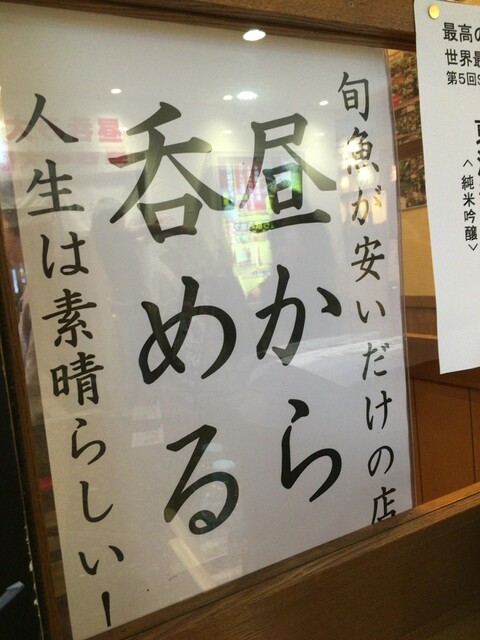 旬魚が安いだけの店
昼から
呑める
人生は素晴らしい！
最高の
世界最
第5回S
＜純米吟醸＞